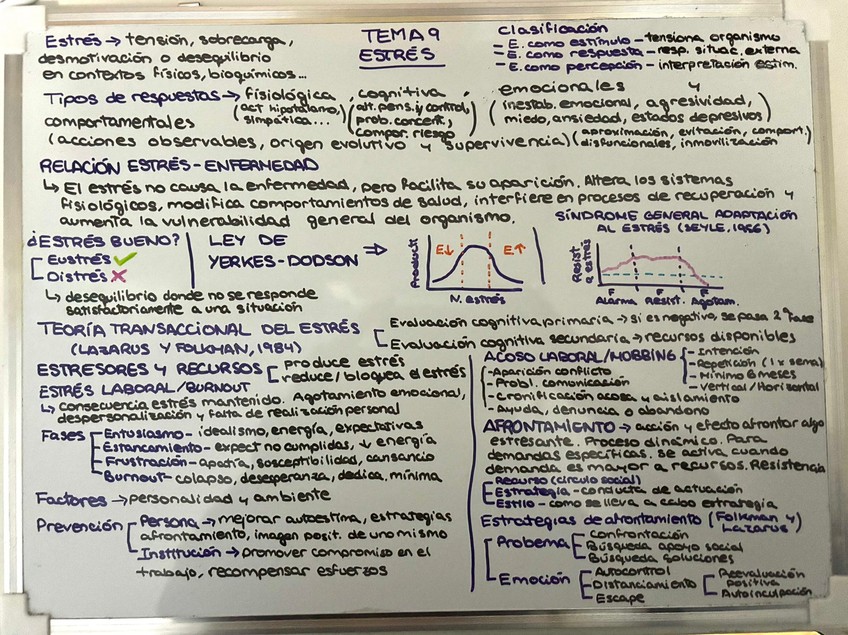 TEMA 9
ESTRÉS
Estrés → tensión, sobrecarga,
desmotivación o desequilibrio
en contextos físicos, bioquímicos...
Clasificación
- E. como estímulo - tensiona organismo
- E. como respuesta - resp. situac. externa
- E. como percepción - interpretación estím.
Tipos de respuestas → fisiológica, cognitiva, emocionales y
(act hipotálamo, simpática...) (alt. pens. y control, prob. concent., compor. riesgo) (inestab. emocional, agresividad, miedo, ansiedad, estados depresivos)
comportamentales
(acciones observables, origen evolutivo y supervivencia) (aproximación, evitación, comport. disfuncionales, inmovilización)
RELACIÓN ESTRÉS - ENFERMEDAD
↳ El estrés no causa la enfermedad, pero facilita su aparición. Altera los sistemas
fisiológicos, modifica comportamientos de salud, interfiere en procesos de recuperación y
aumenta la vulnerabilidad general del organismo.
¿ESTRÉS BUENO?
Eustrés ✓
Distrés ✗
↳ desequilibrio donde no se responde
satisfactoriamente a una situación
LEY DE
YERKES-DODSON ⇒
Product
E↓ E↑
N. estrés
SÍNDROME GENERAL ADAPTACIÓN
AL ESTRÉS (SEYLE, 1956)
Resist a estrés
F F F
Alarma Resist. Agotam.
TEORÍA TRANSACCIONAL DEL ESTRÉS
(LAZARUS Y FOLKMAN, 1984)
Evaluación cognitiva primaria → si es negativo, se pasa 2ª fase
Evaluación cognitiva secundaria → recursos disponibles
ESTRESORES Y RECURSOS
produce estrés
reduce/bloquea el estrés
ESTRÉS LABORAL/BURNOUT
↳ consecuencia estrés mantenido. Agotamiento emocional,
despersonalización y falta de realización personal
Fases
Entusiasmo - idealismo, energía, expectativas
Estancamiento - expect no cumplidas, ↓ energía
Frustración - apatía, susceptibilidad, cansancio
Burnout - colapso, desesperanza, dedica. mínima
Factores → personalidad y ambiente
Prevención
Persona → mejorar autoestima, estrategias
afrontamiento, imagen posit. de uno mismo
Institución → promover compromiso en el
trabajo, recompensar esfuerzos
ACOSO LABORAL/MOBBING
- Intención
- Repetición (1 x sema)
- Mínimo 6 meses
- Vertical/Horizontal
- Aparición conflicto
- Probl. comunicación
- Cronificación acoso y aislamiento
- Ayuda, denuncia o abandono
AFRONTAMIENTO → acción y efecto afrontar algo
estresante. Proceso dinámico. Para
demandas específicas. Se activa cuando
demanda es mayor a recursos. Resistencia
Recurso (círculo social)
Estrategia - conducta de actuación
Estilo - como se lleva a cabo estrategia
Estrategias de afrontamiento (Folkman y Lazarus)
Probema
Confrontación
Búsqueda apoyo social
Búsqueda soluciones
Emoción
Autocontrol
Distanciamiento
Escape
Reevaluación
positiva
Autoinculpación